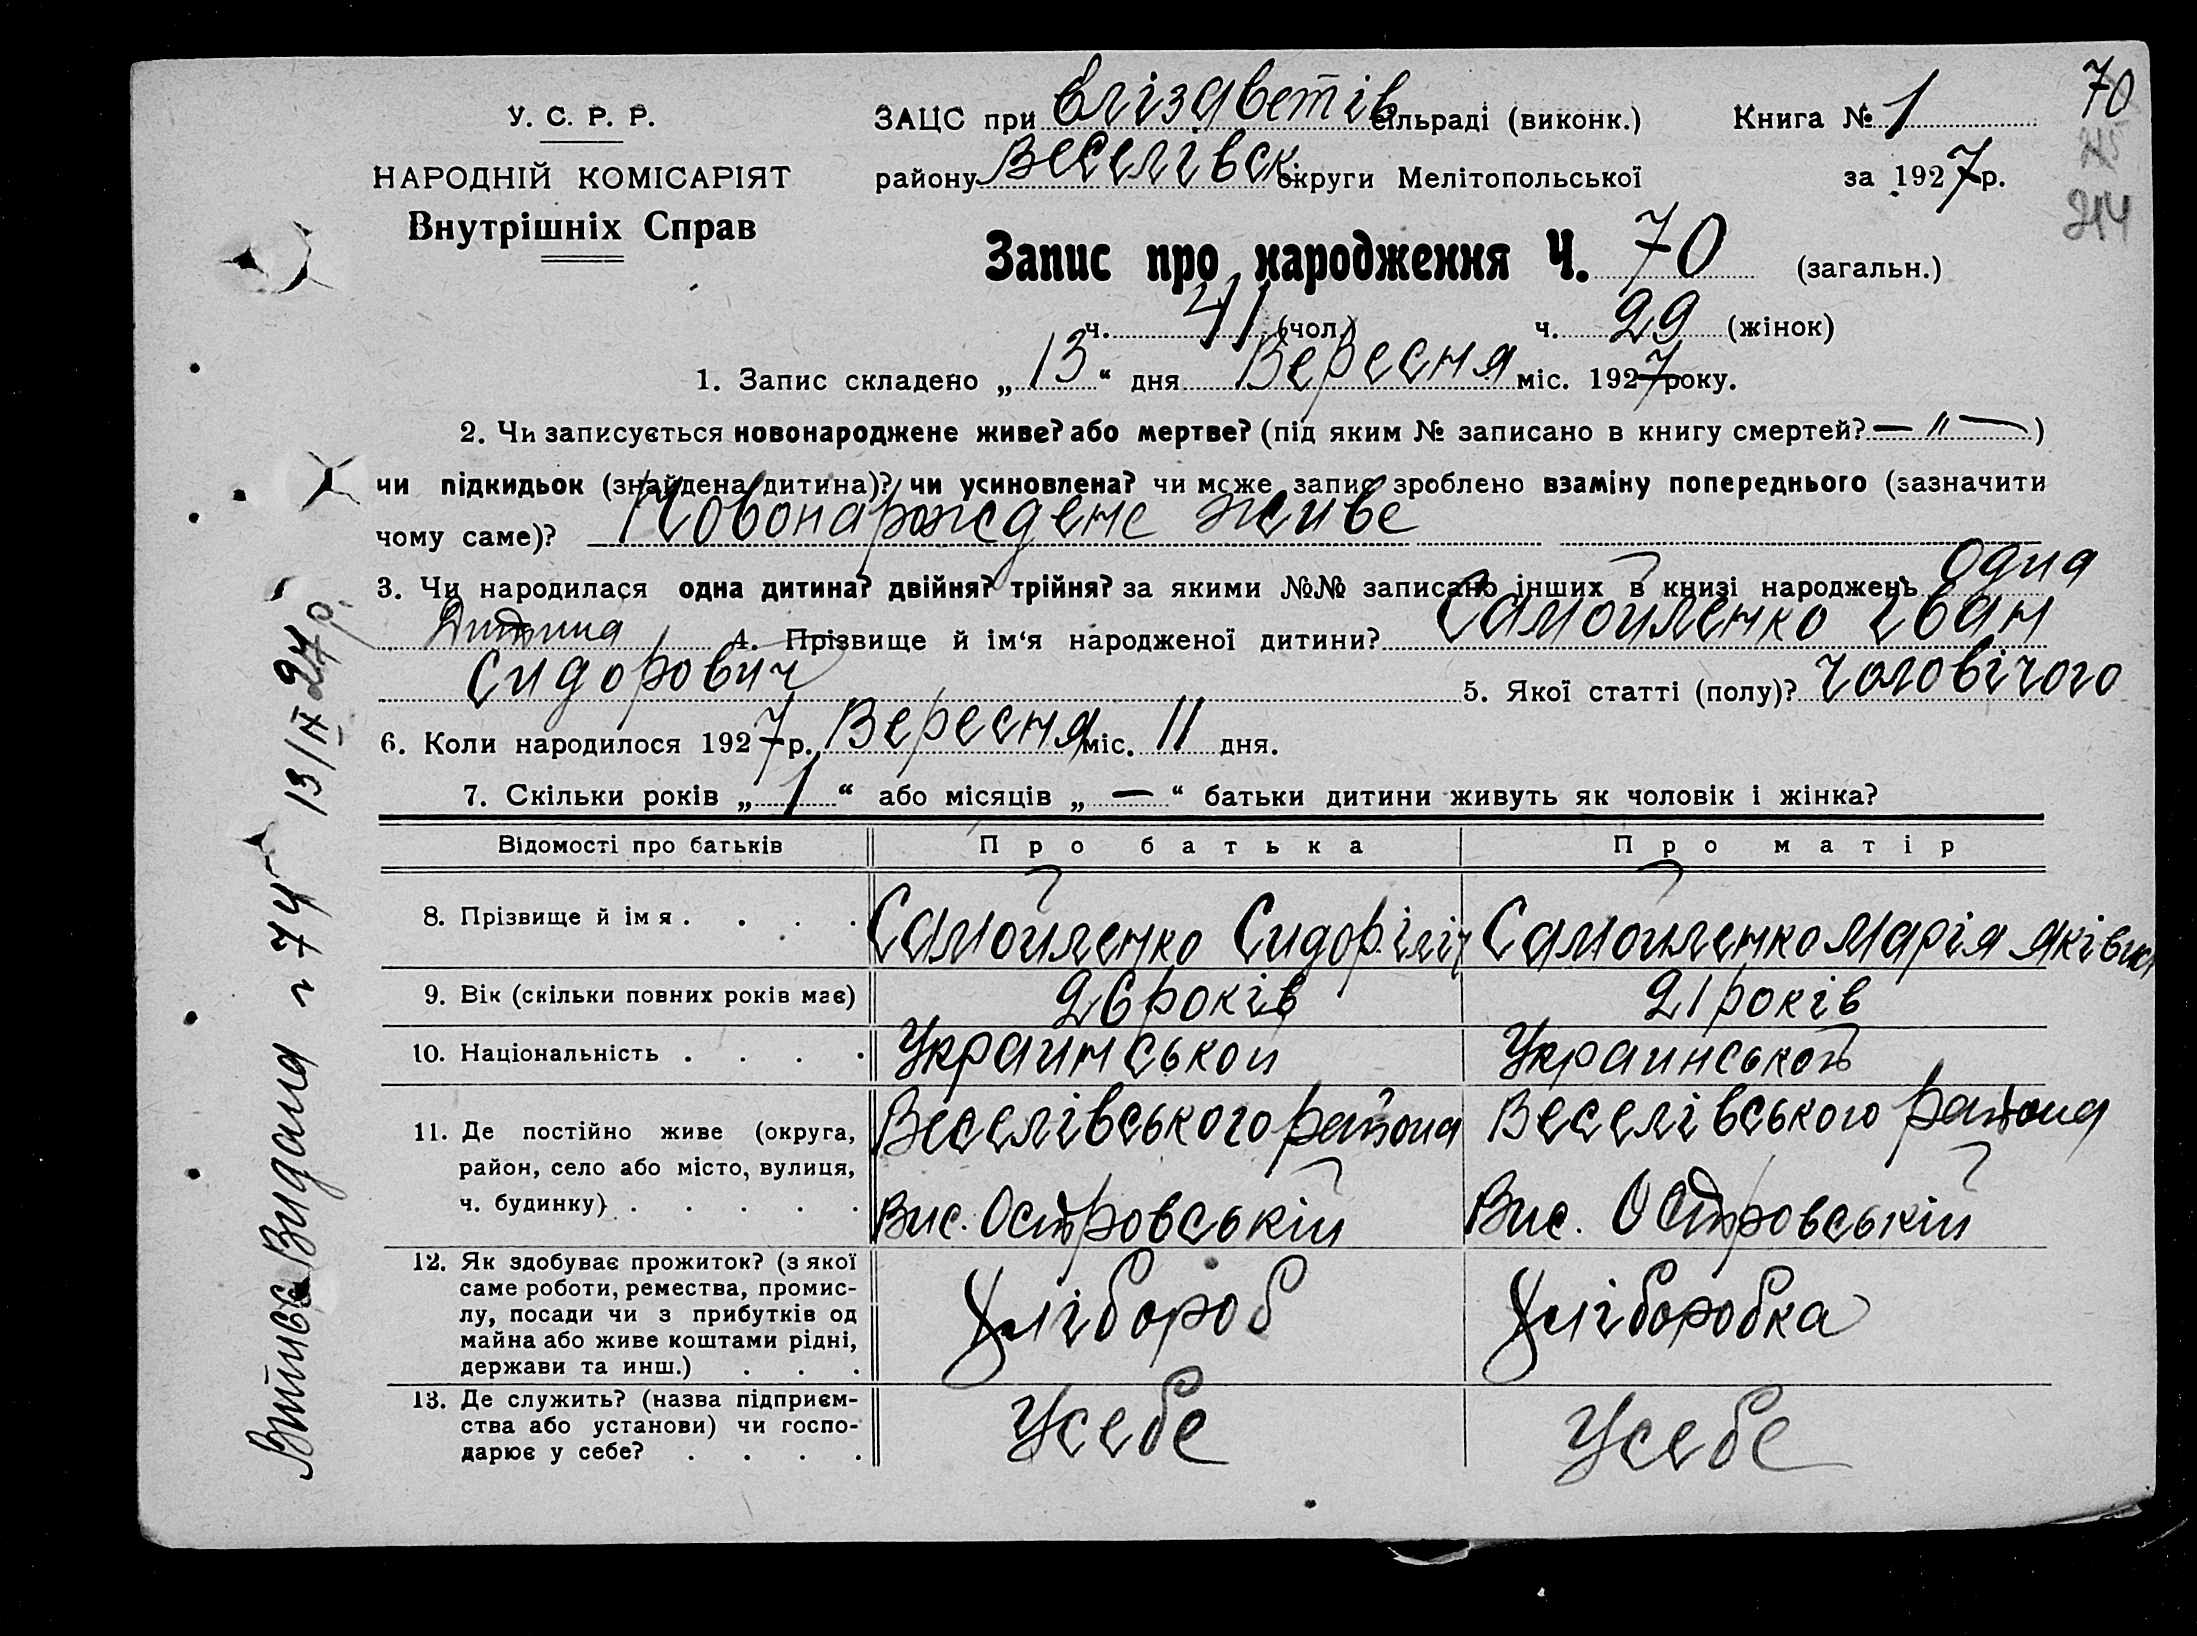 У. С. Р. Р.
НАРОДНІЙ КОМІСАРІЯТ
Внутрішніх Справ
ЗАЦС при Єлізаветів сільраді (виконк.) Книга № 1
70
району Веселівск. округи Мелітопольської за 1927 р.
214
Запис про народження Ч. 70 (загальн.)
ч. 41 (чол.) ч. 29 (жінок)
1. Запис складено „ 13 “ дня Вересня міс. 1927 року.
2. Чи записується новонароджене живе? або мертве? (під яким № записано в книгу смертей? — " — )
чи підкидьок (знайдена дитина)? чи усиновлена? чи може запис зроблено взаміну попереднього (зазначити
чому саме)? Новонарождене живе
3. Чи народилася одна дитина? двійня? трійня? за якими №№ записано інших в книзі народжень Одна
Дитина 4. Прізвище й ім‘я народженої дитини? Самойленко Іван
Сидорович 5. Якої статті (полу)? Чоловічого
6. Коли народилося 1927 р. Вересня міс. 11 дня.
7. Скільки років „ 1 “ або місяців „ — “ батьки дитини живуть як чоловік і жінка?
Відомості про батьків Про батька Про матір
8. Прізвище й імя . . . . Самойленко Сидор Іліч Самойленко Марія Яківна
9. Вік (скільки повних років має) 26 років 21 років
10. Національність . . . . Украинськои Украинськои
11. Де постійно живе (округа, Веселівського района Веселівського района
район, село або місто, вулиця,
ч. будинку) . . . . . Вис. Островській Вис. Островській
12. Як здобуває прожиток? (з якої
саме роботи, ремества, промис-
лу, посади чи з прибутків од Хлібороб Хліборобка
майна або живе коштами рідні,
держави та инш.) . . .
13. Де служить? (назва підприєм-
ства або установи) чи госпо- Усебе Усебе
дарює у себе? . . . .
Видана № 74 13/IX 27 р.